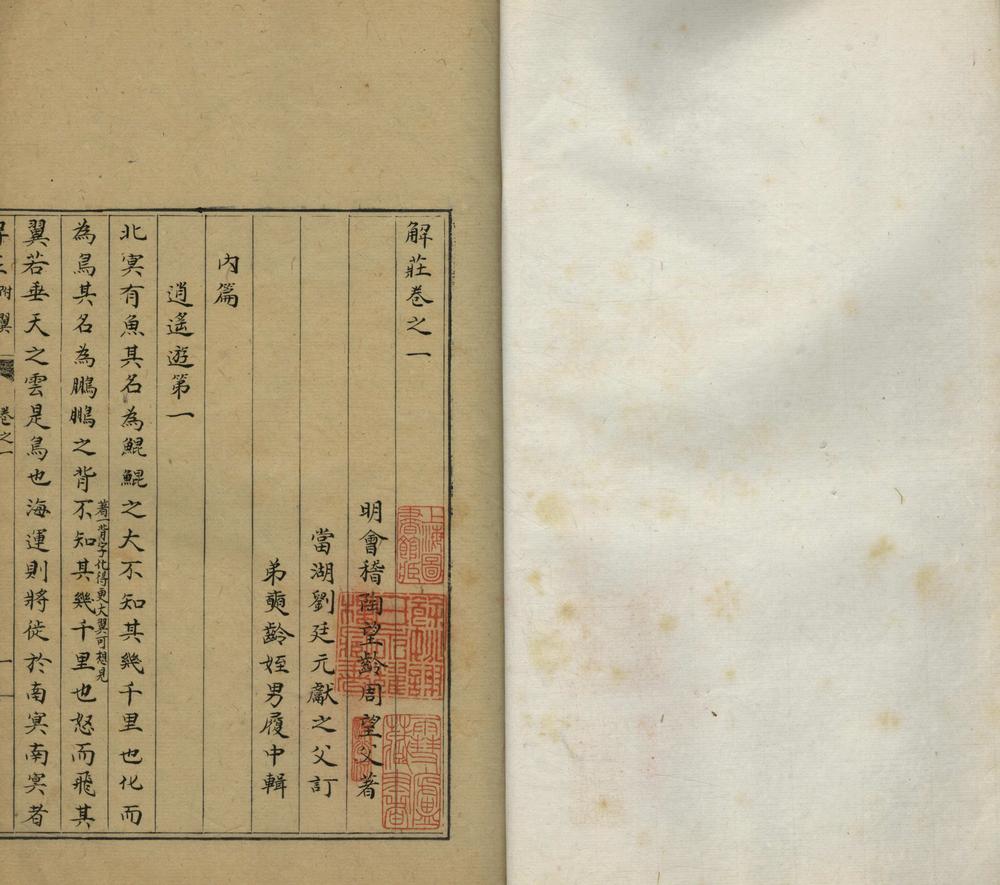 解莊卷之一
明會稽陶望齡周望父著
當湖劉廷元獻之父訂
弟奭齡姪男履中輯
內篇
逍遙遊第一
北冥有魚其名為鯤鯤之大不知其幾千里也化而
為鳥其名為鵬鵬之背不知其幾千里也怒而飛其
著一背字化得更大翼可想見
翼若垂天之雲是鳥也海運則將徙於南冥南冥者
卷之一
上海圖書館藏